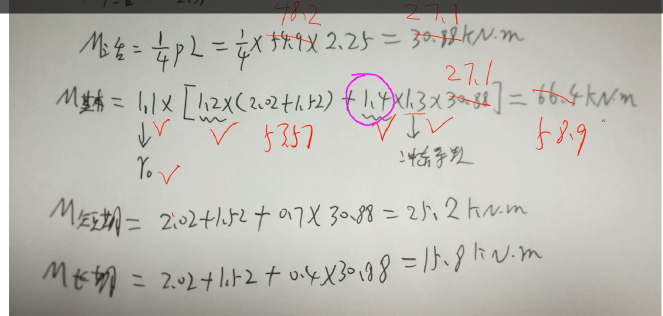 48.2 27.1
M活 = 1/4 pL = 1/4 × 54.9 × 2.25 = 30.88 kN.m
27.1
M基本 = 1.1 × [1.2×(2.02+1.52) + 1.4×1.3×30.88] = 66.4 kN.m
5357 58.9
γ₀ 冲击系数
M短期 = 2.02+1.52+0.7×30.88 = 25.2 kN.m
M长期 = 2.02+1.52+0.4×30.88 = 15.8 kN.m